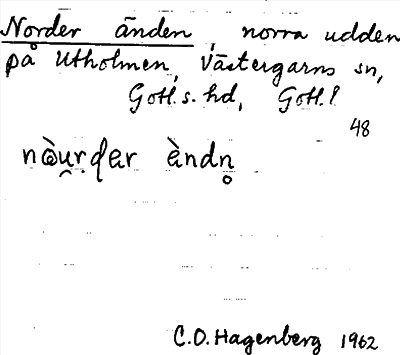 Norder änden, norra udden
på Utholmen, Västergarns sn,
Gotl. s. hd, Gotl. l
48
nòu̯rdar èndn̥
C.O. Hagenberg 1962